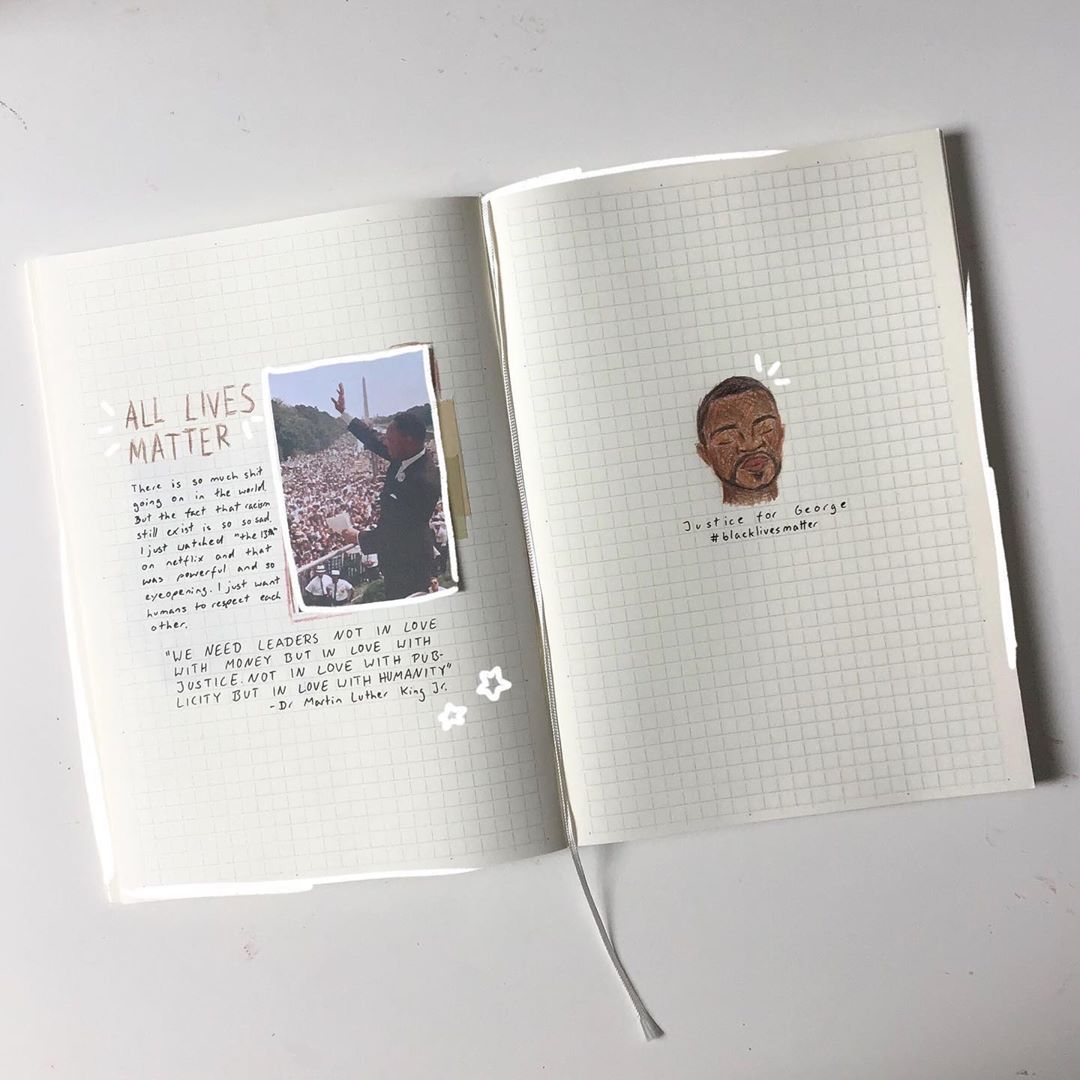 ALL LIVES
MATTER
There is so much shit
going on in the world.
But the fact that racism
still exist is so so sad.
I just watched "the 13th"
on netflix and that
was powerful and so
eyeopening. I just want
humans to respect each
other.
"WE NEED LEADERS NOT IN LOVE
WITH MONEY BUT IN LOVE WITH
JUSTICE. NOT IN LOVE WITH PUB-
LICITY BUT IN LOVE WITH HUMANITY"
-Dr Martin Luther King Jr.
Justice for George
#blacklivesmatter